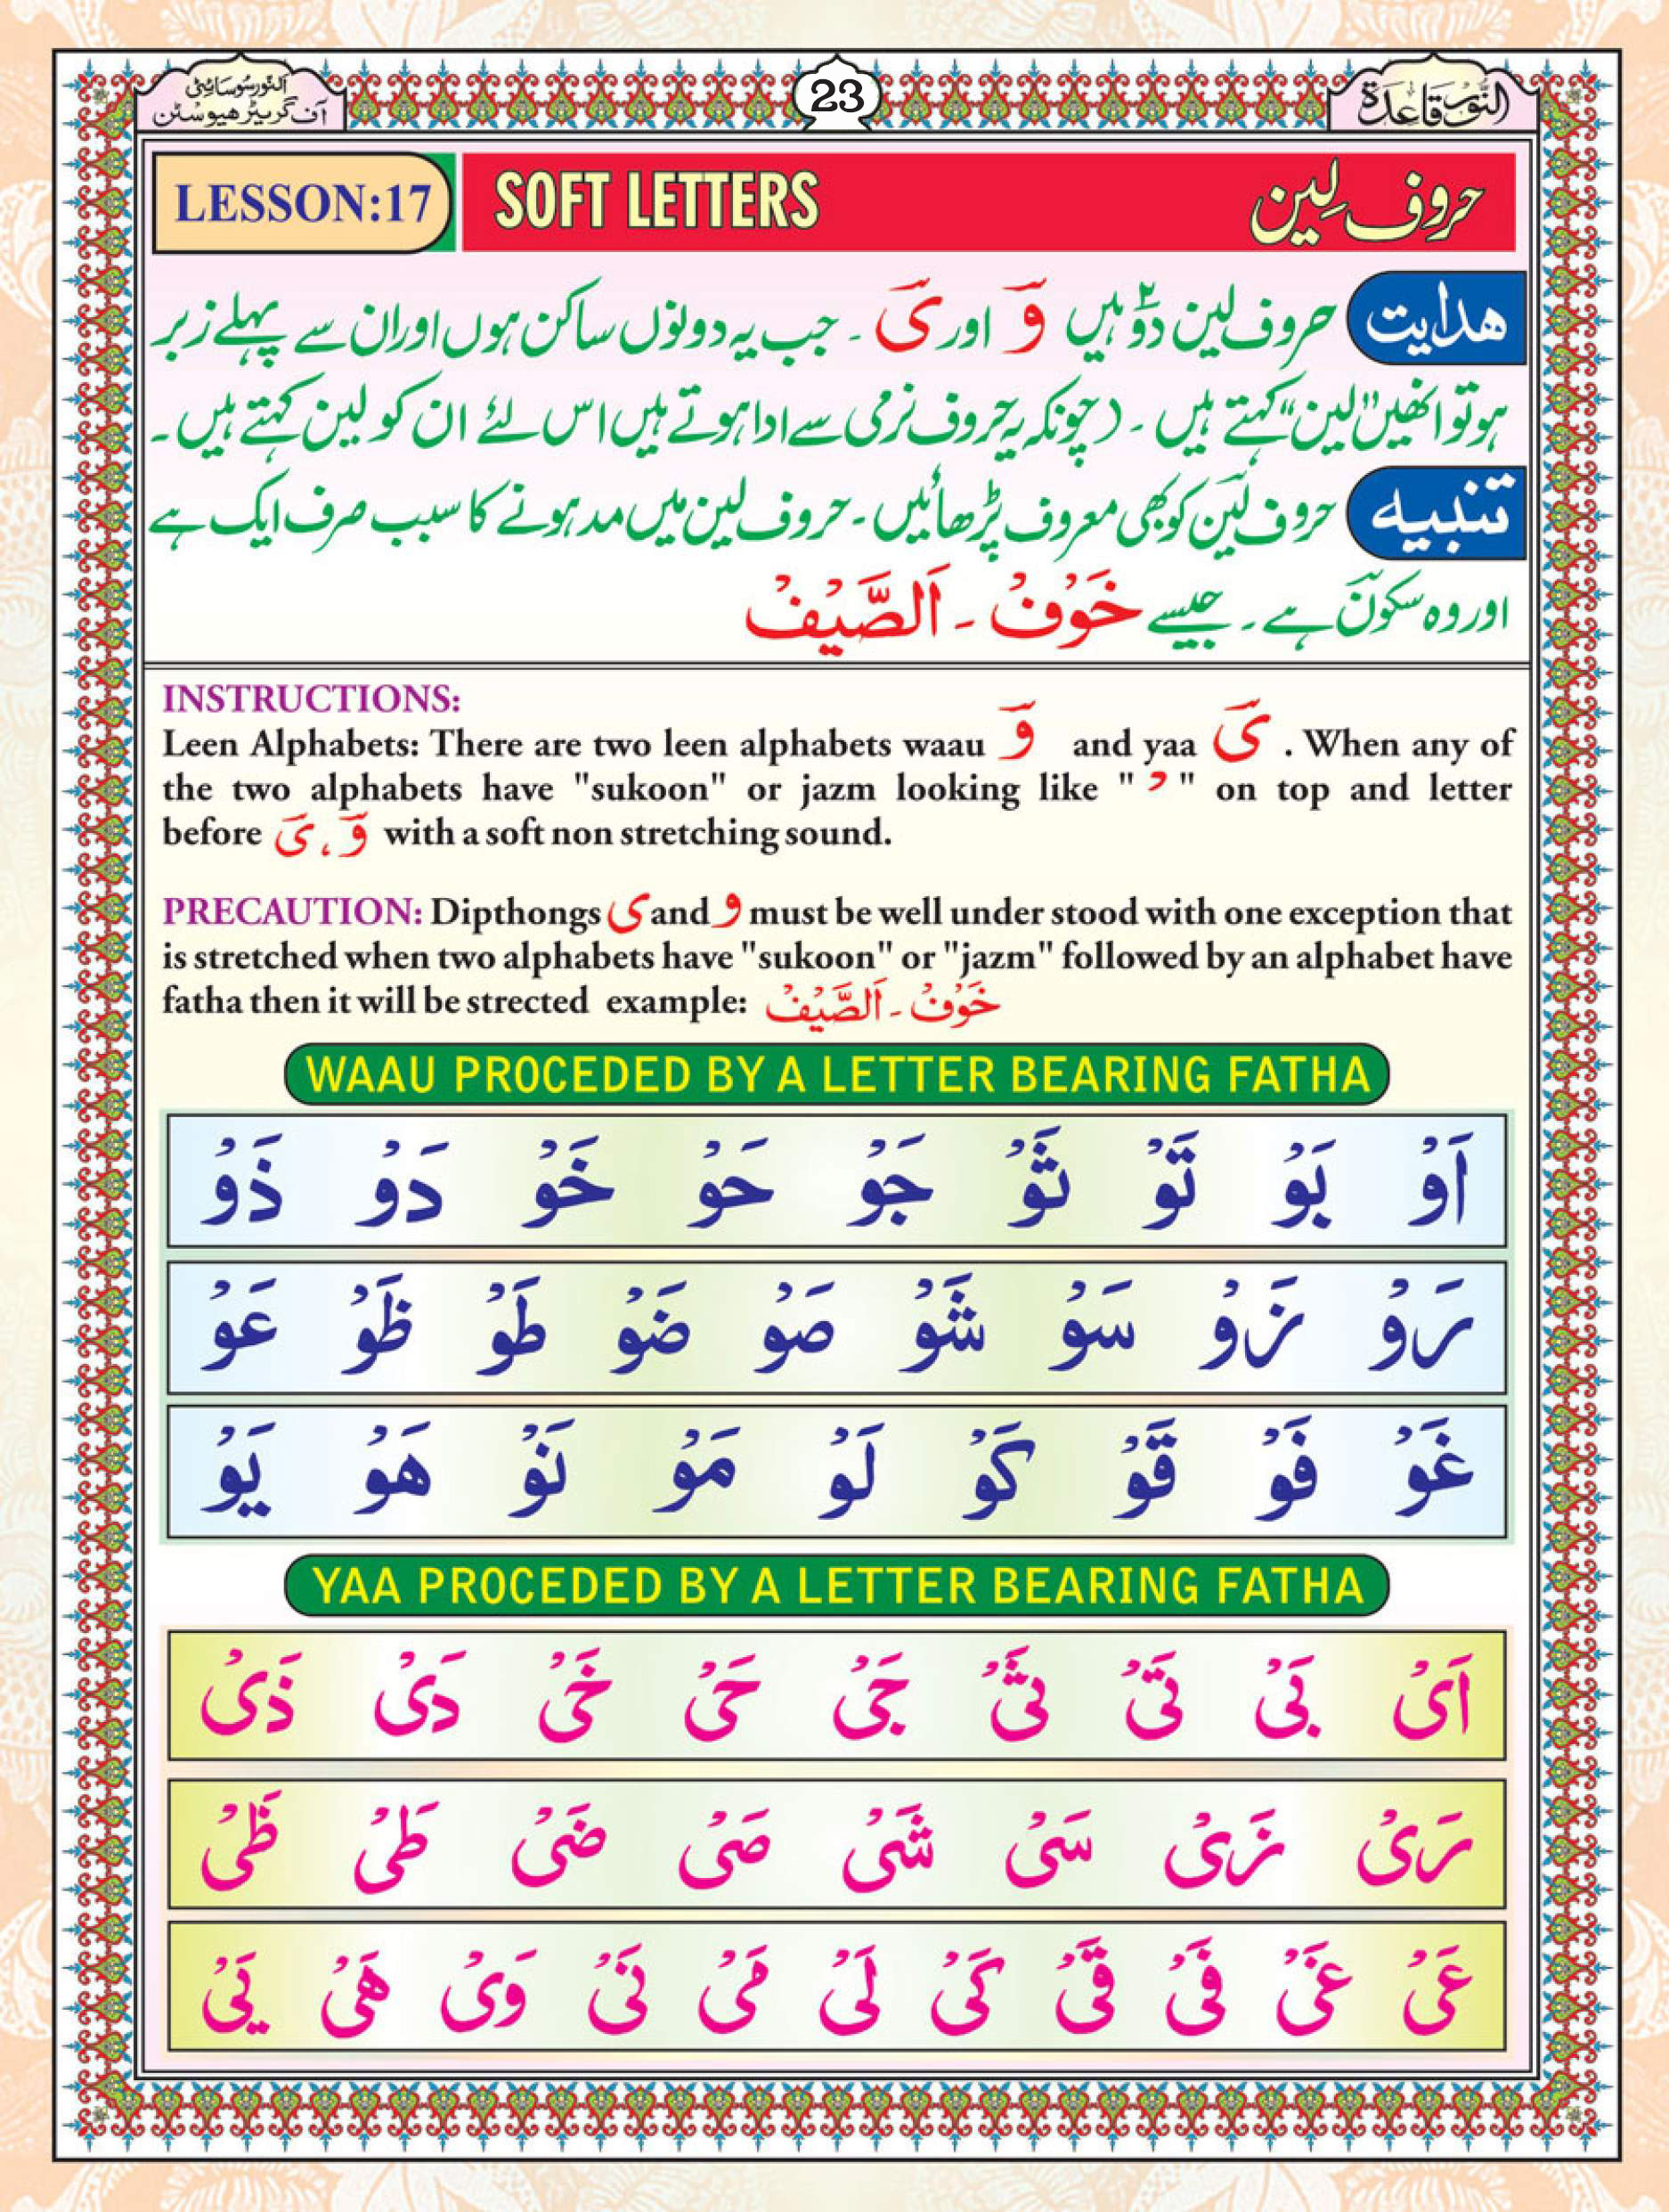 النُّور قَاعِدَة
23
اَلنُّور سُوسَائِٹی
آف گریٹر ھیوسٹن
LESSON:17 SOFT LETTERS حروف لِین
ھدایت حروف لین دو ہیں وَ اور یَ ۔ جب یہ دونوں ساکن ہوں اور ان سے پہلے زبر
ہو تو انھیں "لین" کہتے ہیں ۔ (چونکہ یہ حروف نرمی سے ادا ہوتے ہیں اس لئے ان کو لین کہتے ہیں ۔
تنبیہ حروف لین کو بھی معروف پڑھائیں ۔ حروف لین میں مد ہونے کا سبب صرف ایک ہے
اور وہ سکون ہے ۔ جیسے خَوْفْ ۔ اَلصَّیْفْ
INSTRUCTIONS:
Leen Alphabets: There are two leen alphabets waau وَ and yaa یَ . When any of
the two alphabets have "sukoon" or jazm looking like " ْ " on top and letter
before یَ ، وَ with a soft non stretching sound.
PRECAUTION: Dipthongs ی and و must be well under stood with one exception that
is stretched when two alphabets have "sukoon" or "jazm" followed by an alphabet have
fatha then it will be strected example: خَوْفْ ۔ اَلصَّیْفْ
WAAU PROCEDED BY A LETTER BEARING FATHA
اَوْ بَوْ تَوْ ثَوْ جَوْ حَوْ خَوْ دَوْ ذَوْ
رَوْ زَوْ سَوْ شَوْ صَوْ ضَوْ طَوْ ظَوْ عَوْ
غَوْ فَوْ قَوْ كَوْ لَوْ مَوْ نَوْ هَوْ يَوْ
YAA PROCEDED BY A LETTER BEARING FATHA
اَیْ بَیْ تَیْ ثَیْ جَیْ حَیْ خَیْ دَیْ ذَیْ
رَیْ زَیْ سَیْ شَیْ صَیْ ضَیْ طَیْ ظَیْ
عَیْ غَیْ فَیْ قَیْ كَیْ لَیْ مَیْ نَیْ وَیْ هَیْ يَیْ